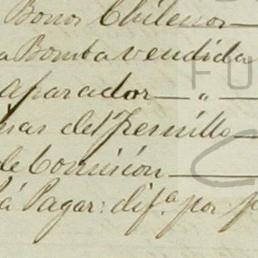 Bonos Chilenos
a Bomba vendida
aparador — " —
nas del Fresnillo
de Comision
á Pagar: dif.ª por